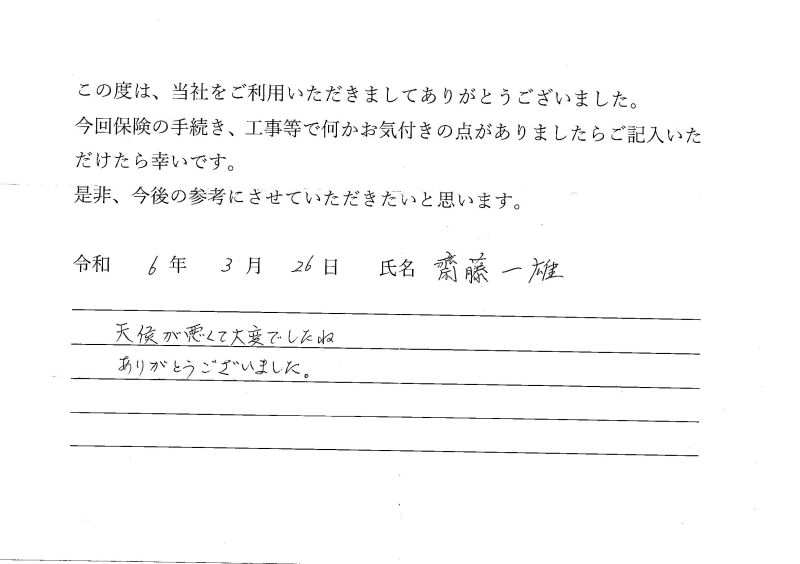 この度は、当社をご利用いただきましてありがとうございました。
今回保険の手続き、工事等で何かお気付きの点がありましたらご記入いた
だけたら幸いです。
是非、今後の参考にさせていただきたいと思います。
令和 6 年 3 月 26 日 氏名 齋藤一雄
天候が悪くて大変でしたね
ありがとうございました。